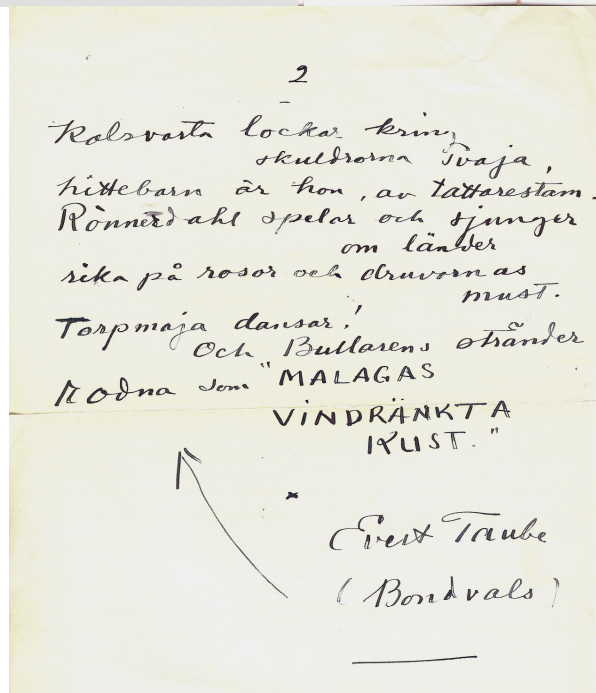 2
Kolsvarta lockar kring
skuldrorna svaja,
hittebarn är hon, av tattarestam.
Rönnerdahl spelar och sjunger
om länder
rika på rosor och druvornas
must.
Torpmaja dansar!
Och Bullarens stränder
rodna som "MALAGAS
VINDRÄNKTA
KUST."
Evert Taube
(Bondvals)